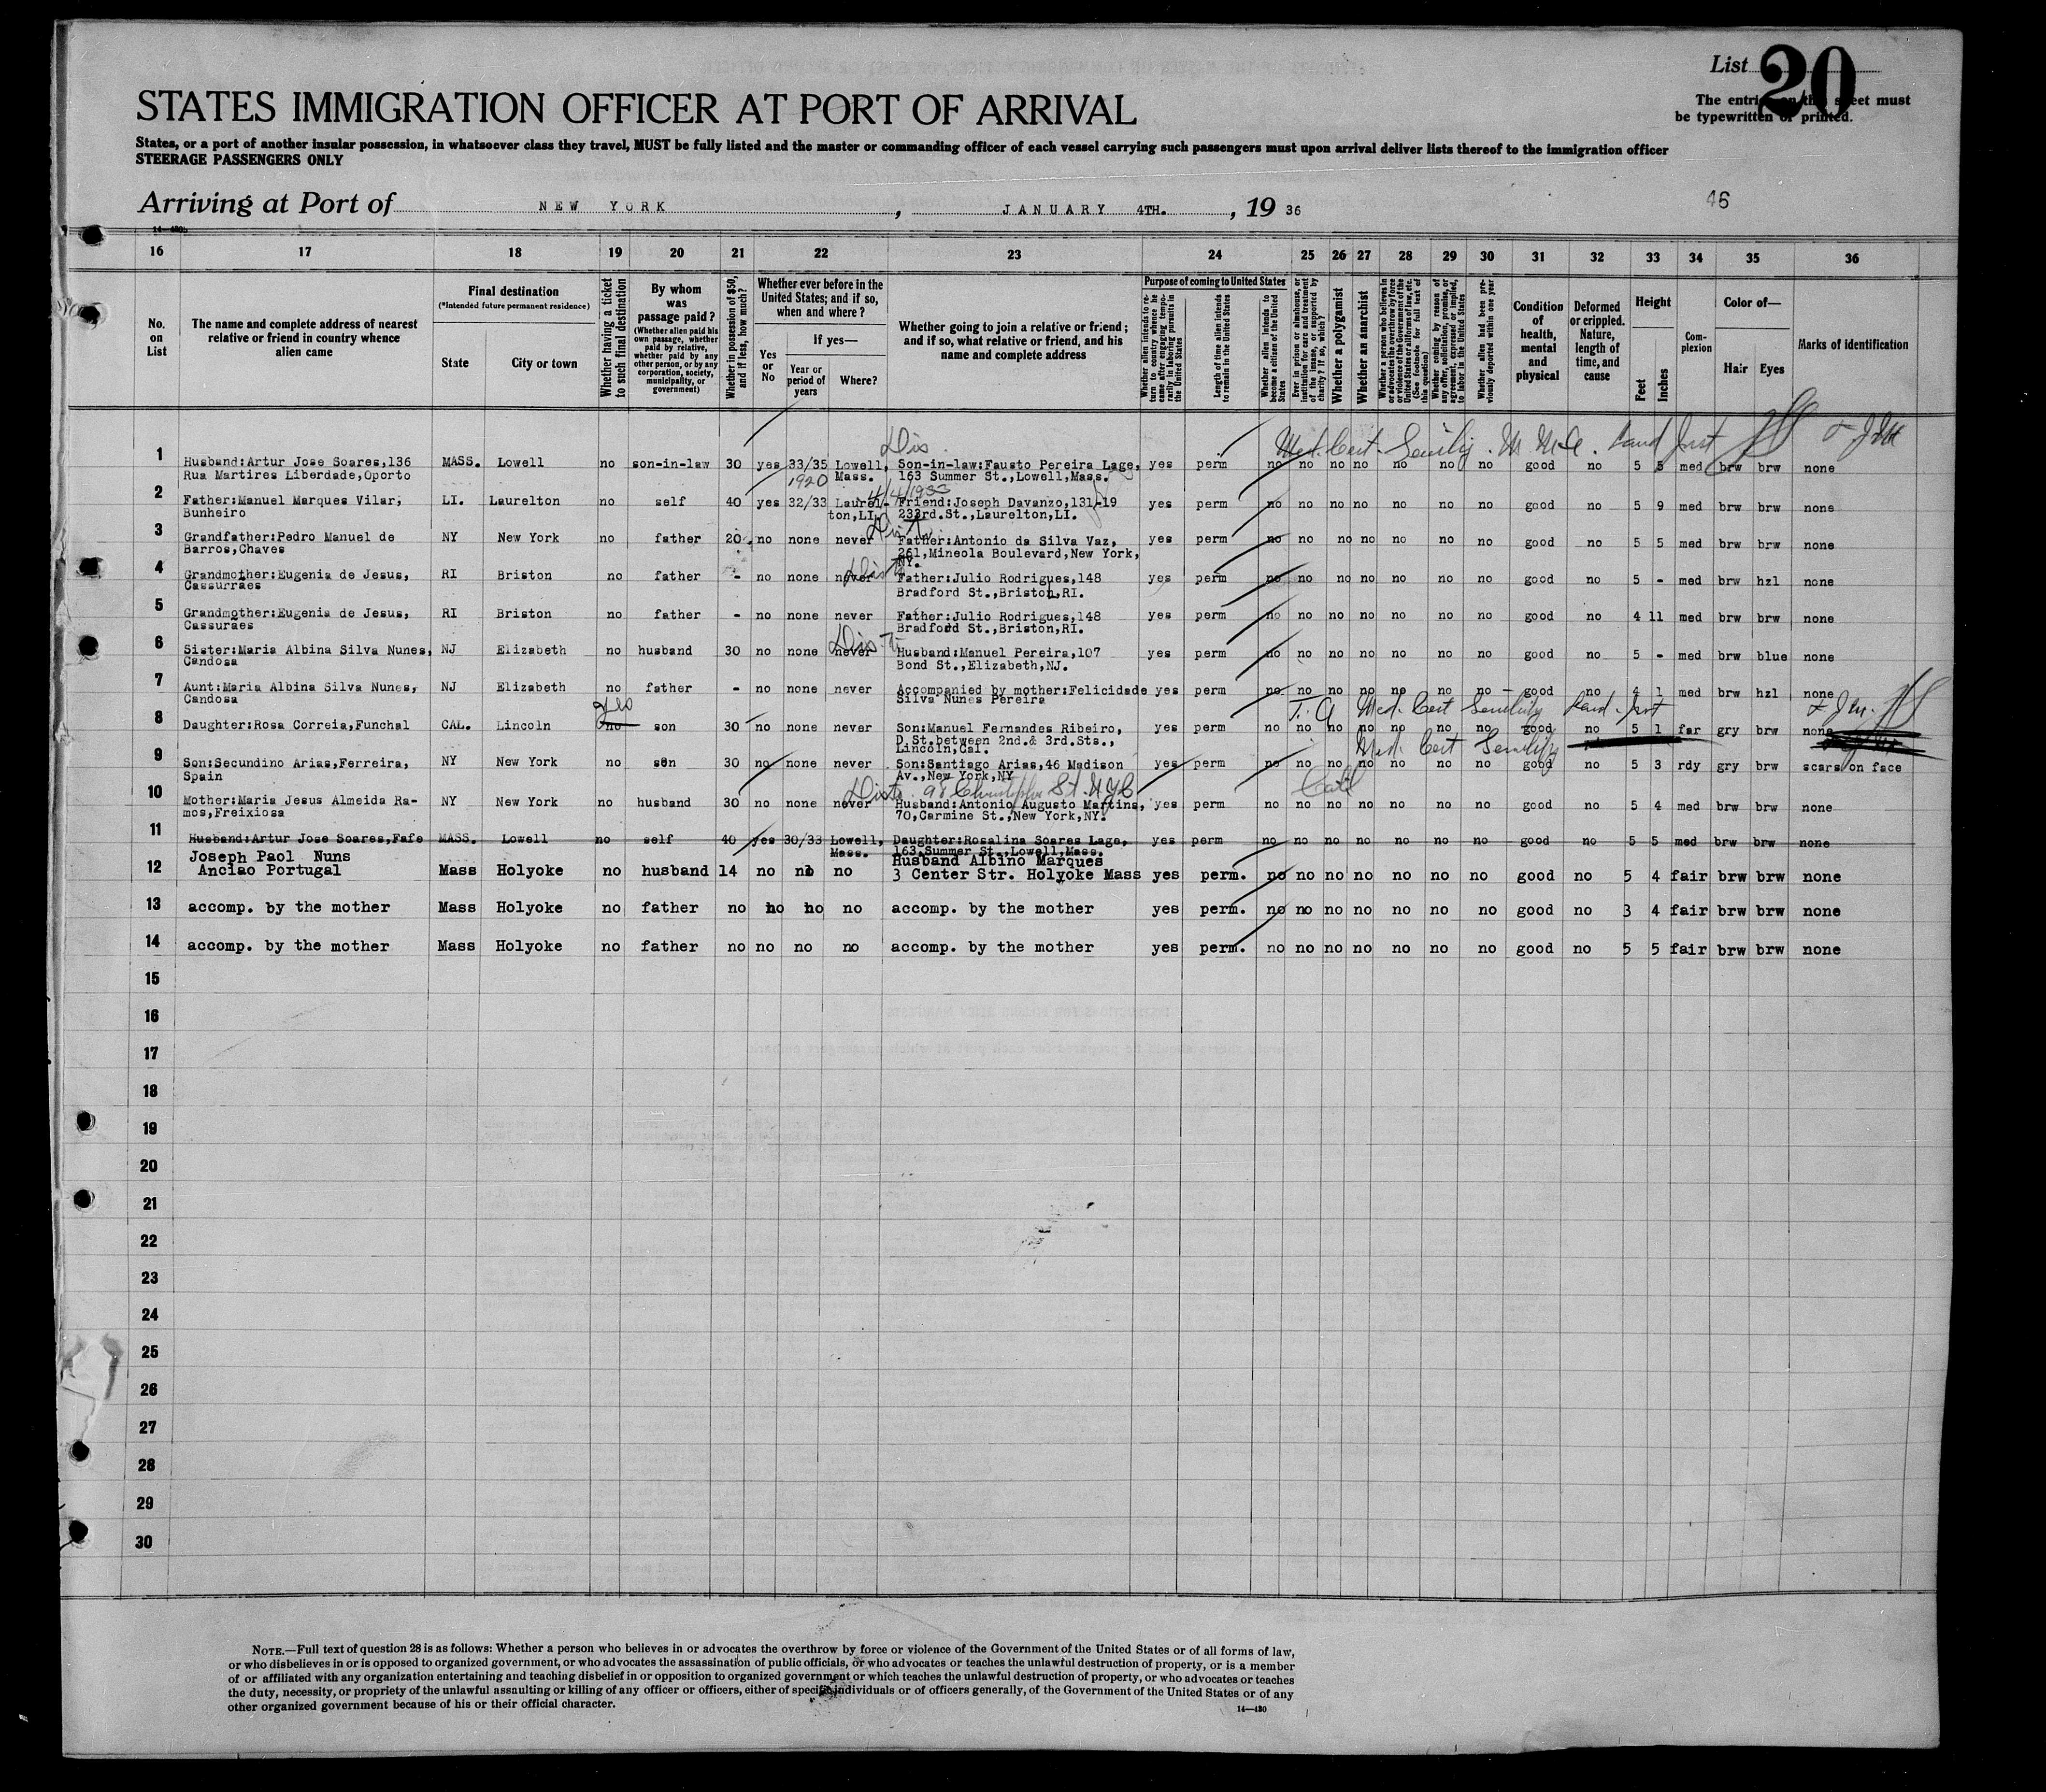 List 20
The entries on this sheet must
be typewritten or printed.
STATES IMMIGRATION OFFICER AT PORT OF ARRIVAL
States, or a port of another insular possession, in whatsoever class they travel, MUST be fully listed and the master or commanding officer of each vessel carrying such passengers must upon arrival deliver lists thereof to the immigration officer
STEERAGE PASSENGERS ONLY
Arriving at Port of NEW YORK, JANUARY 4TH., 1936
46
16 17 18 19 20 21 22 23 24 25 26 27 28 29 30 31 32 33 34 35 36
No. on List
The name and complete address of nearest relative or friend in country whence alien came
Final destination
(*Intended future permanent residence)
State
City or town
Whether having a ticket to such final destination
By whom was passage paid?
(Whether alien paid his own passage, whether paid by relative, whether paid by any other person, or by any corporation, society, municipality, or government)
Whether in possession of $50, and if less, how much?
Whether ever before in the United States; and if so, when and where?
Yes or No
If yes—
Year or period of years
Where?
Whether going to join a relative or friend; and if so, what relative or friend, and his name and complete address
Purpose of coming to United States
Whether alien intends to return to country whence he came after engaging temporarily in laboring pursuits in the United States
Length of time alien intends to remain in the United States
Whether alien intends to become a citizen of the United States
Ever in prison or almshouse, or institution for care and treatment of the insane, or supported by charity? If so, which?
Whether a polygamist
Whether an anarchist
Whether a person who believes in or advocates the overthrow by force or violence of the Government of the United States or all forms of law, etc. (See footnote for full text of this question)
Whether coming by reason of any offer, solicitation, promise, or agreement, expressed or implied, to labor in the United States
Whether alien had been previously deported within one year
Condition of health, mental and physical
Deformed or crippled. Nature, length of time, and cause
Height
Feet
Inches
Complexion
Color of—
Hair
Eyes
Marks of identification
Dis. Med. Cert. Senility.
1 Husband:Artur Jose Soares,136 MASS. Lowell no son-in-law 30 yes 33/35 Lowell, Son-in-law:Fausto Pereira Lage, yes perm no no no no no no no good no 5 5 med brw brw none
Rua Martires Liberdade,Oporto Mass. 163 Summer St.,Lowell,Mass.
1920 4/4/1933
2 Father:Manuel Marques Vilar, LI. Laurelton no self 40 yes 32/33 Laurel- Friend:Joseph Davanzo,131-19 yes perm no no no no no no no good no 5 9 med brw brw none
Bunheiro ton,LI. 233rd.St.,Laurelton,LI.
3 Grandfather:Pedro Manuel de NY New York no father 20. no none never Father:Antonio da Silva Vaz, yes perm no no no no no no no good no 5 5 med brw brw none
Barros,Chaves 261,Mineola Boulevard,New York,
NY.
4 Grandmother:Eugenia de Jesus, RI Briston no father - no none never Father:Julio Rodrigues,148 yes perm no no no no no no no good no 5 - med brw hzl none
Cassurraes Bradford St.,Briston,RI.
5 Grandmother:Eugenia de Jesus, RI Briston no father - no none never Father:Julio Rodrigues,148 yes perm no no no no no no no good no 4 11 med brw brw none
Cassuraes Bradford St.,Briston,RI.
6 Sister:Maria Albina Silva Nunes, NJ Elizabeth no husband 30 no none never Husband:Manuel Pereira,107 yes perm no no no no no no no good no 5 - med brw blue none
Candosa Bond St.,Elizabeth,NJ.
7 Aunt:Maria Albina Silva Nunes, NJ Elizabeth no father - no none never Accompanied by mother:Felicidade yes perm no no no no no no no good no 4 1 med brw hzl none
Candosa Silva Nunes Pereira
yes Med. Cert Senility
8 Daughter:Rosa Correia,Funchal CAL. Lincoln no son 30 no none never Son:Manuel Fernandes Ribeiro, yes perm no no no no no no no good no 5 1 far gry brw none
D St.between 2nd.& 3rd.Sts.,
Lincoln,Cal.
Med. Cert Senility
9 Son:Secundino Arias,Ferreira, NY New York no son 30 no none never Son:Santiago Arias,46 Madison yes perm no no no no no no no good no 5 3 rdy gry brw scars on face
Spain Av.,New York,NY
98 Christopher St. NYC
10 Mother:Maria Jesus Almeida Ra- NY New York no husband 30 no none never Husband:Antonio Augusto Martins, yes perm no no no no no no no good no 5 4 med brw brw none
mos,Freixiosa 70,Carmine St.,New York,NY.
11 Husband:Artur Jose Soares,Fafe MASS. Lowell no self 40 yes 30/33 Lowell, Daughter:Rosalina Soares Lage, yes perm no no no no no no no good no 5 5 med brw brw none
Mass. 163,Summer St.,Lowell,Mass.
Joseph Paol Nuns Husband Albino Marques
12 Anciao Portugal Mass Holyoke no husband 14 no no no 3 Center Str. Holyoke Mass yes perm. no no no no no no no good no 5 4 fair brw brw none
13 accomp. by the mother Mass Holyoke no father no no no no accomp. by the mother yes perm. no no no no no no no good no 3 4 fair brw brw none
14 accomp. by the mother Mass Holyoke no father no no no no accomp. by the mother yes perm. no no no no no no no good no 5 5 fair brw brw none
15
16
17
18
19
20
21
22
23
24
25
26
27
28
29
30
NOTE.—Full text of question 28 is as follows: Whether a person who believes in or advocates the overthrow by force or violence of the Government of the United States or of all forms of law,
or who disbelieves in or is opposed to organized government, or who advocates the assassination of public officials, or who advocates or teaches the unlawful destruction of property, or is a member
of or affiliated with any organization entertaining and teaching disbelief in or opposition to organized government or which teaches the unlawful destruction of property, or who advocates or teaches
the duty, necessity, or propriety of the unlawful assaulting or killing of any officer or officers, either of specific individuals or of officers generally, of the Government of the United States or of any
other organized government because of his or their official character.
14—430